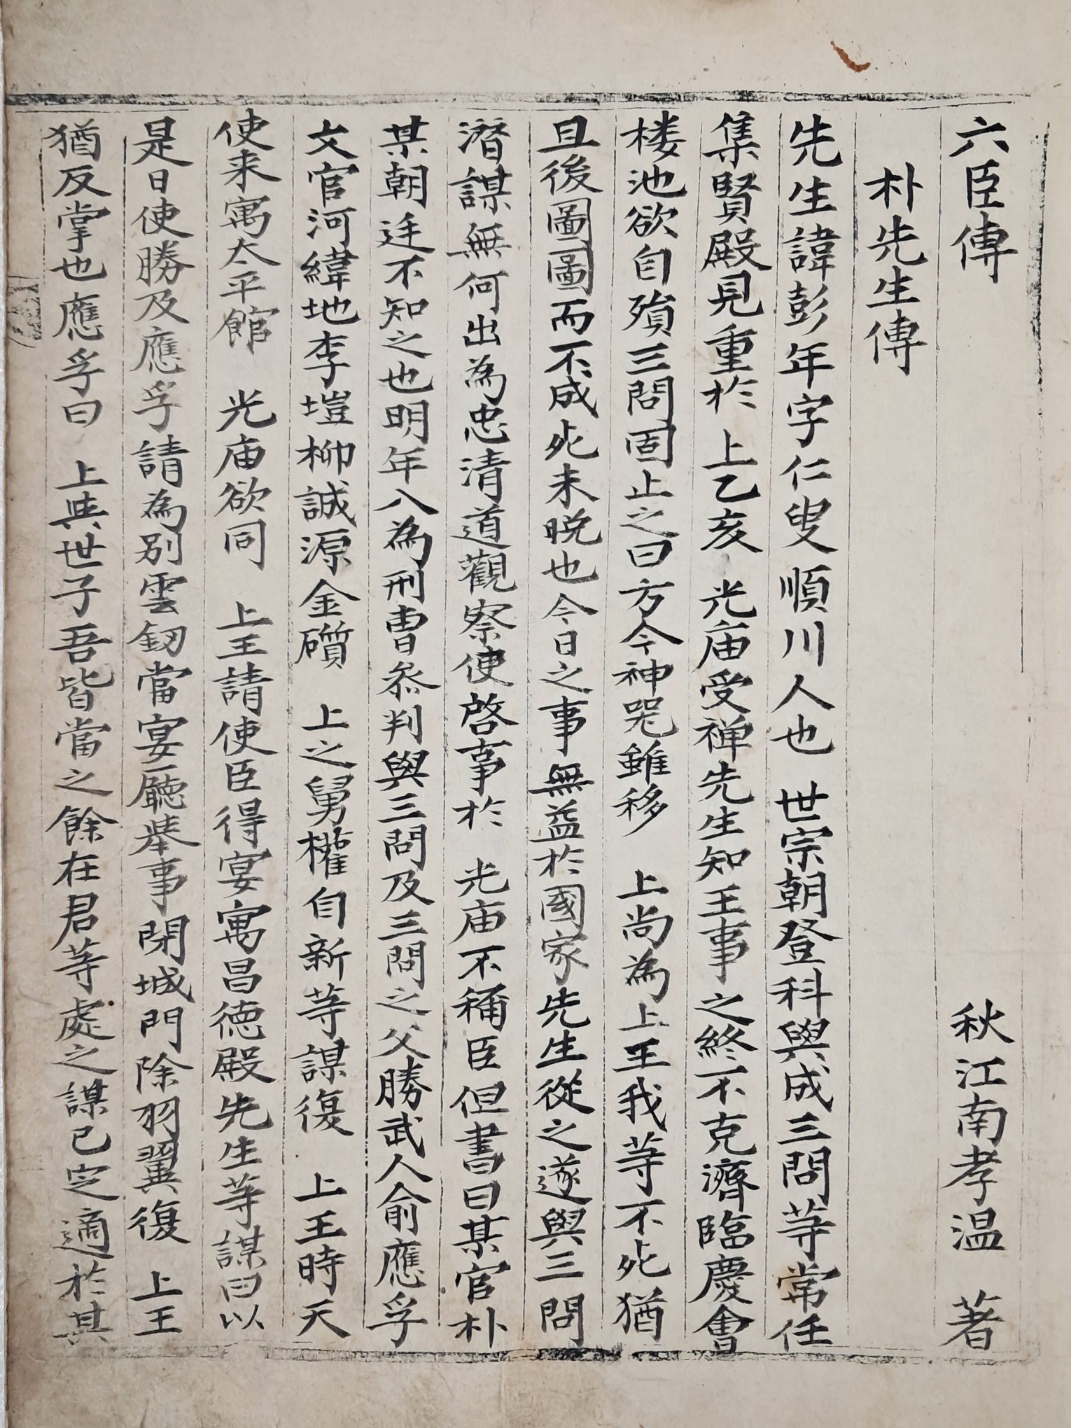 六臣傳 秋江南孝温 著
朴先生傳
先生諱彭年字仁叟順川人也 世宗朝登科與成三問等常任
集賢殿見重於 上乙亥 光庙受禅先生知王事之終不克濟臨慶會
楼池欲自殞三問固止之曰方今神咒雖移 上尚為上王我等不死猶
且後圖圖而不成死未晚也今日之事無益於國家先生從之遂與三問
潛謀無何出為忠清道觀察使啓事於 光庙不稱臣但書曰某官朴
某朝廷不知之也明年入為刑曹叅判與三問及三問之父勝武人俞應孚
文官河緯地李塏柳誠源金礩 上之舅權自新等謀復 上王時天
使来寓太平館 光庙欲同 上王請使臣得宴寓昌德殿先生等謀曰以
是日使勝及應孚請為別雲釼當宴廳举事閉城門除羽翼復 上王
猶反掌也應孚曰 上與世子吾皆當之餘在君等處之謀已定適於其